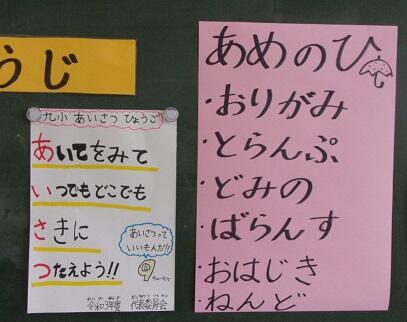 うじ
九小 あいさつ ひょうご
あいてをみて
いつでもどこでも
さきに
つたえよう!!
あいさつって
いいもんだ!!
令和3年度 代表委員会
あめのひ
・おりがみ
・とらんぷ
・どみの
・ばらんす
・おはじき
・ねんど